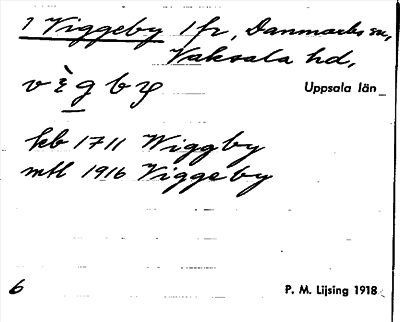 1 Viggeby 1 fr, Danmarks sn,
Vaksala hd,
v ὲ g b y
Uppsala län
kb 1711 Wiggby
mtl 1916 Viggeby
6 P. M. Lijsing 1918